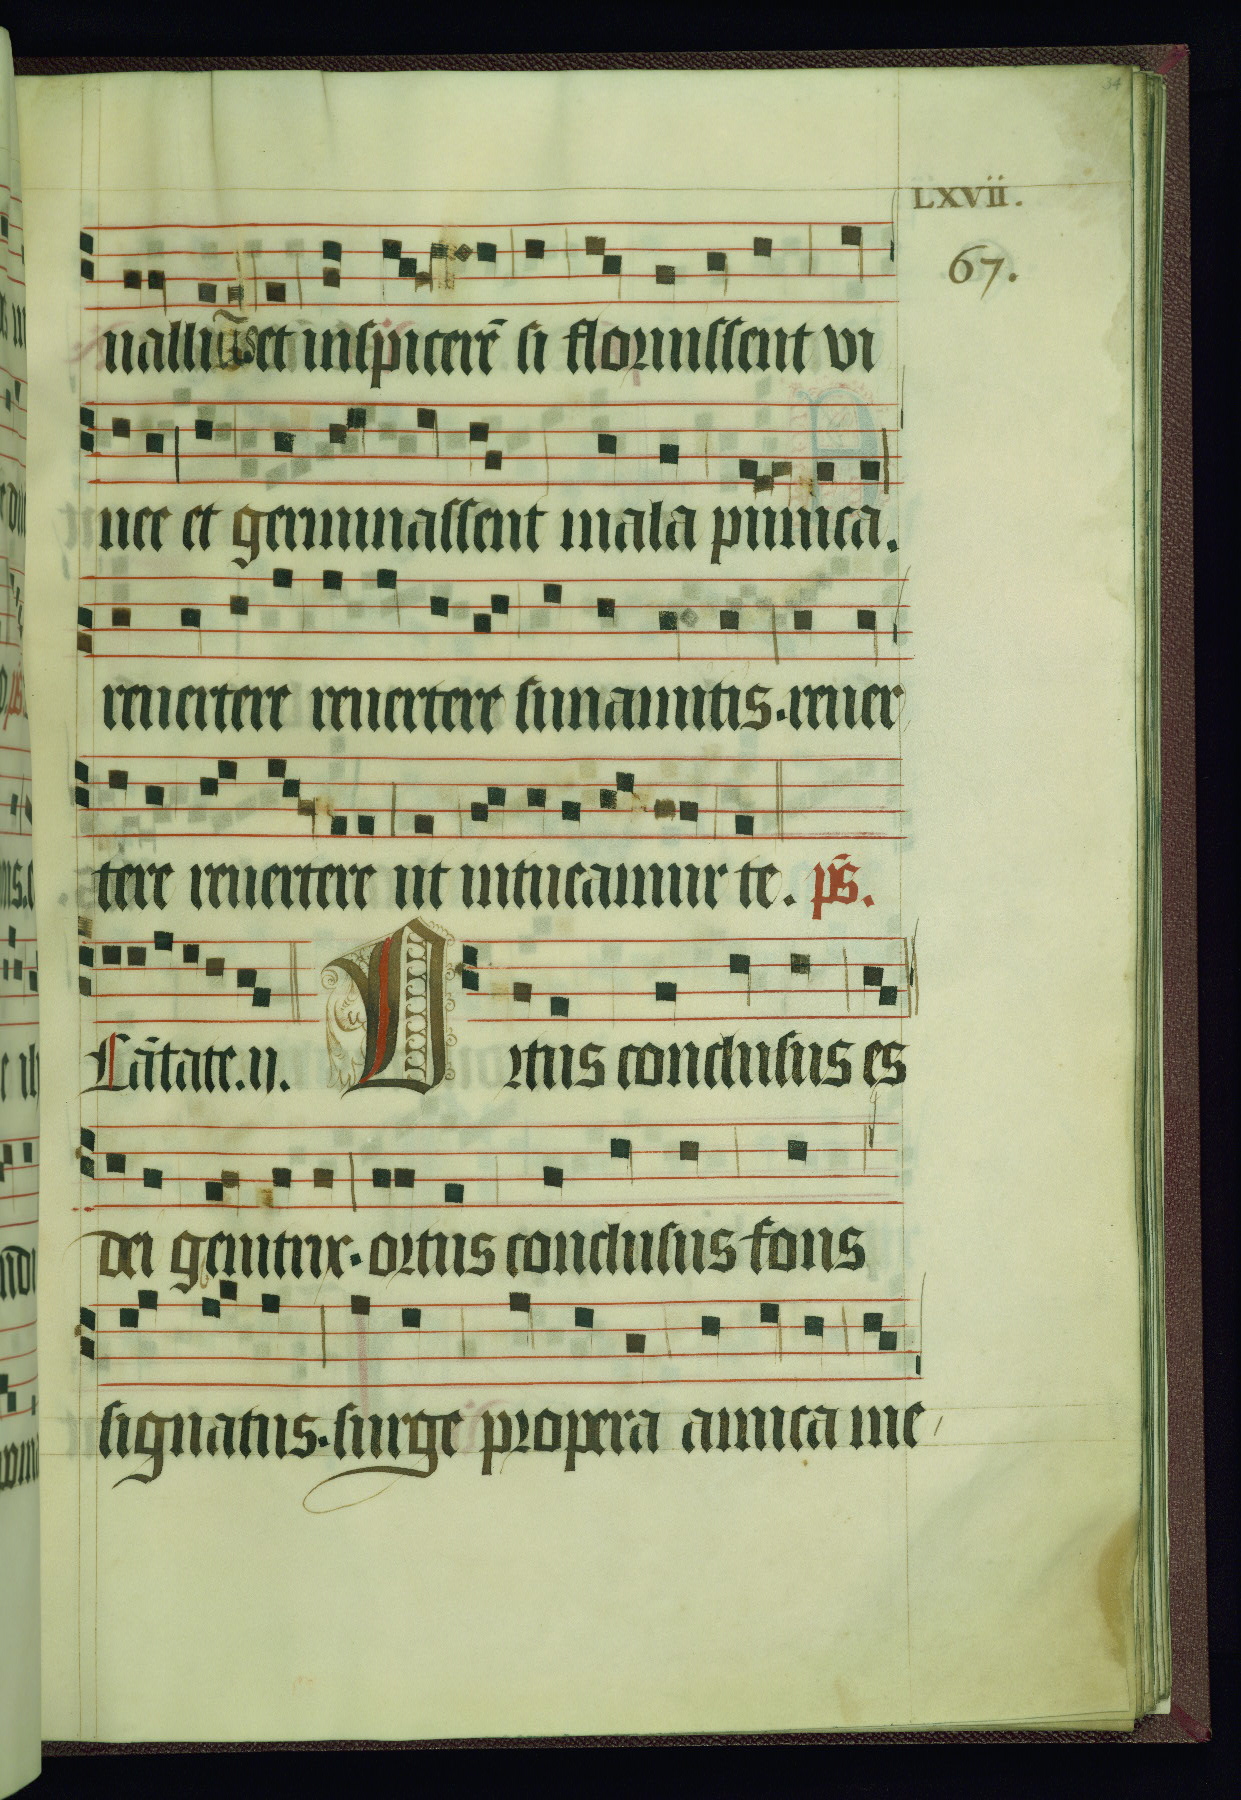 34
LXVII.
67.
uallium et inspicerē si floruissent vi
nee et germinassent mala punica.
reuertere reuertere sunamitis. reuer
tere reuertere ut intueamur te. ps̄.
Cātate. ij. Ortus conclusus es
dei genitrix. ortus conclusus fons
signatus. surge propera amica me